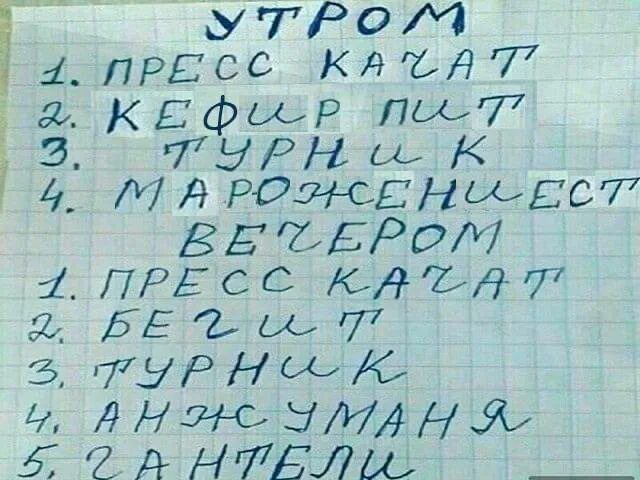 УТРОМ
1. ПРЕСС КАЧАТ
2. КЕФИР ПИТ
3. ТУРНИК
4. МАРОЖЕНИ ЕСТ
ВЕЧЕРОМ
1. ПРЕСС КАЧАТ
2. БЕГИТ
3. ТУРНИК
4. АНЖУМАНЯ
5. ГАНТЕЛИ